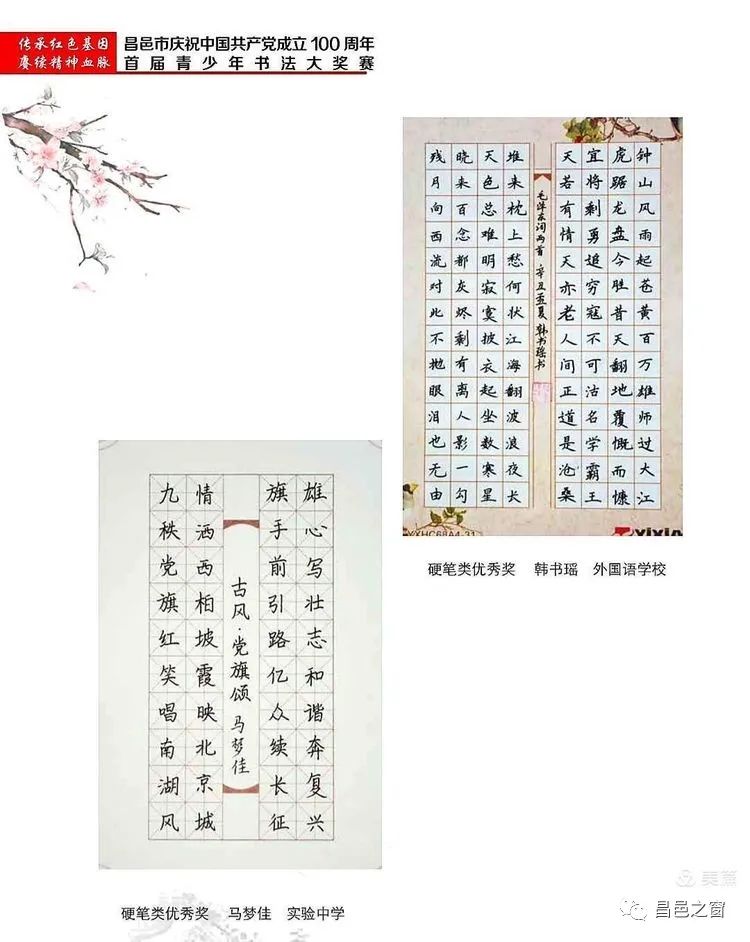 传承红色基因
赓续精神血脉
昌邑市庆祝中国共产党成立100周年
首届青少年书法大奖赛
钟山风雨起苍黄百万雄师过大江
虎踞龙盘今胜昔天翻地覆慨而慷
宜将剩勇追穷寇不可沽名学霸王
天若有情天亦老人间正道是沧桑
毛泽东词两首·辛丑孟夏 韩书瑶书
堆来枕上愁何状江海翻波浪夜长
天色总难明寂寞披衣起坐数寒星
晓来百念都灰烬剩有离人影一勾
残月向西流对此不抛眼泪也无由
YXHC68A4-31
硬笔类优秀奖 韩书瑶 外国语学校
九秩党旗红笑唱南湖风
情洒西柏坡霞映北京城
古风·党旗颂 马梦佳
旗手前引路亿众续长征
雄心写壮志和谐奔复兴
硬笔类优秀奖 马梦佳 实验中学
美篇
昌邑之窗